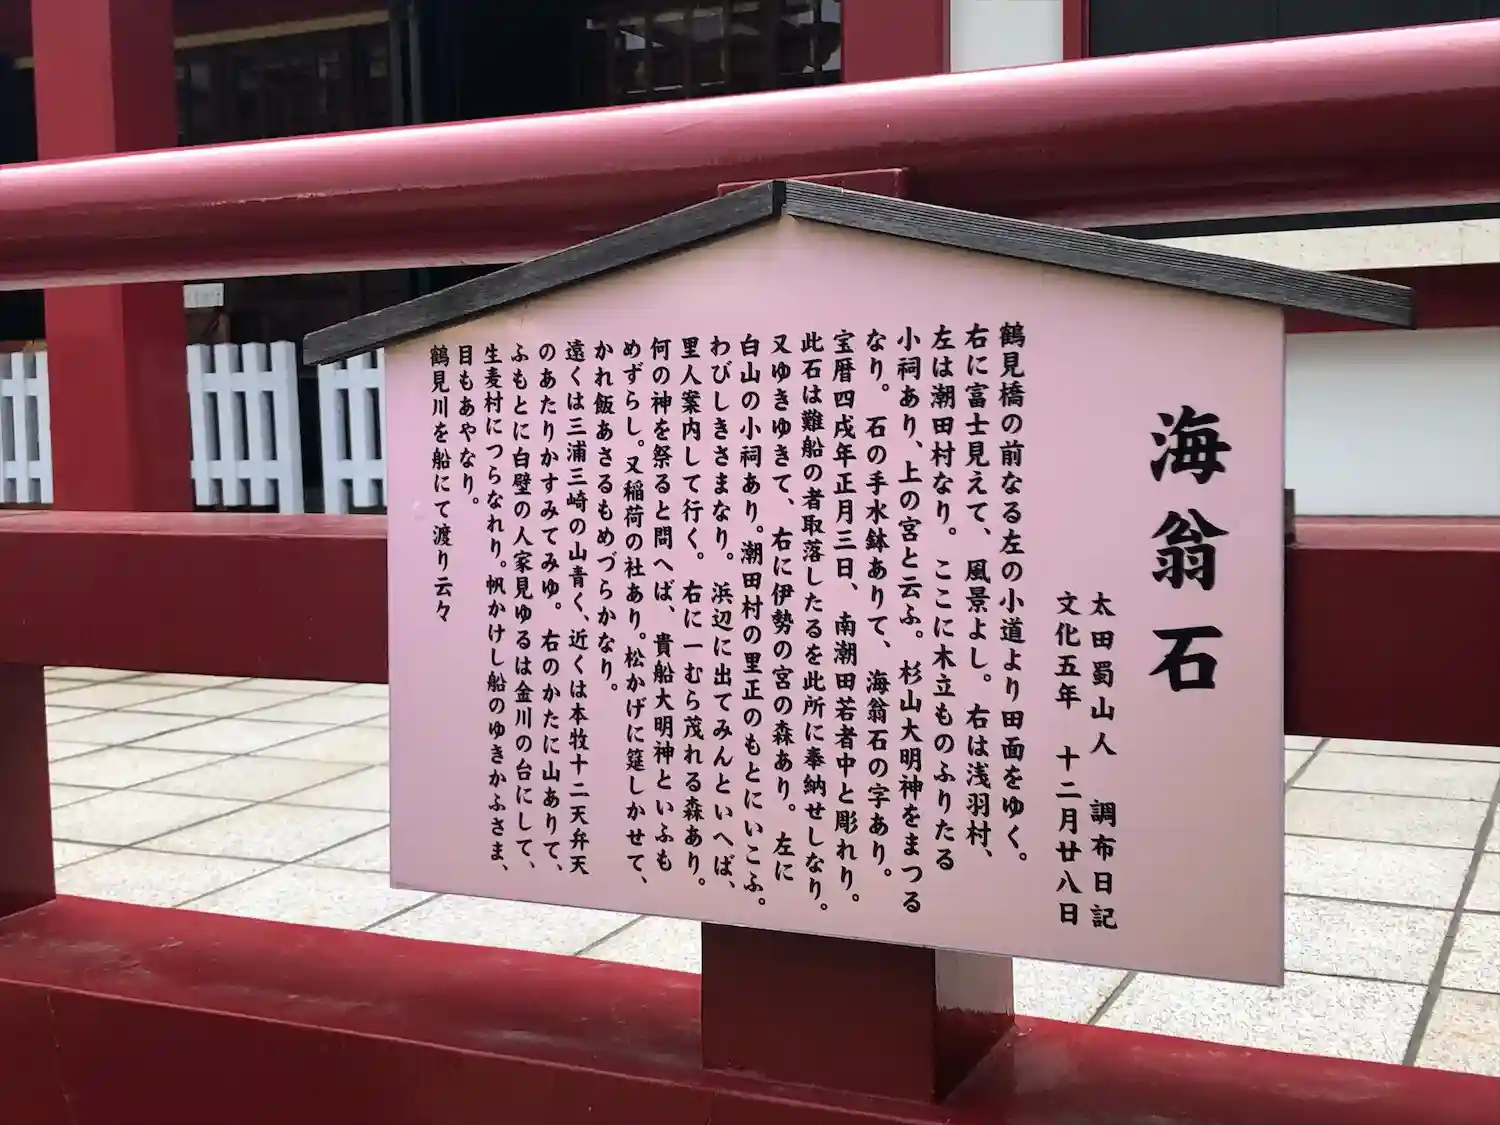 海翁石
太田蜀山人　調布日記
文化五年　十二月廿八日
鶴見橋の前なる左の小道より田面をゆく。
右に富士見えて、風景よし。右は浅羽村、
左は潮田村なり。ここに木立ものふりたる
小祠あり、上の宮と云ふ。杉山大明神をまつる
なり。石の手水鉢ありて、海翁石の字あり。
宝暦四戌年正月三日、南潮田若者中と彫れり。
此石は難船の者取落したるを此所に奉納せしなり。
又ゆきゆきて、右に伊勢の宮の森あり。左に
白山の小祠あり。潮田村の里正のもとにいこふ。
わびしきさまなり。浜辺に出てみんといへば、
里人案内して行く。右に一むら茂れる森あり。
何の神を祭ると問へば、貴船大明神といふも
めずらし。又稲荷の社あり。松かげに筵しかせて、
かれ飯あさるもめづらかなり。
遠くは三浦三崎の山青く、近くは本牧十二天弁天
のあたりかすみてみゆ。右のかたに山ありて、
ふもとに白壁の人家見ゆるは金川の台にして、
生麦村につらなれり。帆かけし船のゆきかふさま、
目もあやなり。
鶴見川を船にて渡り云々